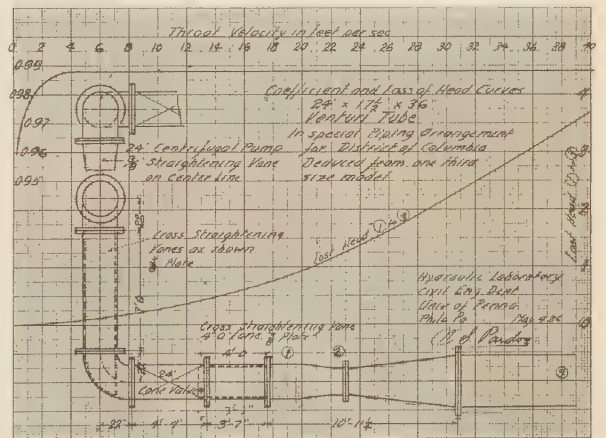 Throat Velocity in feet per sec
0 2 4 6 8 10 12 14 16 18 20 22 24 26 28 30 32 34 36 38 40
0.99
0.98
0.97
0.96
0.95
Coefficient and Loss of Head Curves
24" x 17½ x 36"
Venturi Tube
In special Piping Arrangement
for District of Columbia
Deduced from one third
size model
24" Centrifugal Pump
Straightening Vane
on Centre Line
Cross Straightening
Vanes as shown
Plate
Lost Head ① to ③
Lost Head ① to ③
Hydraulic Laboratory
Civil Eng. Dept.
Univ of Penna.
Phila Pa
W S Pardoe
Cross Straightening Vane
4'-0" Long ⅜ Plate
4'-0
① ② ③
24"
Cone Valve
22" 4'-4" 3'-7" 10'-11½